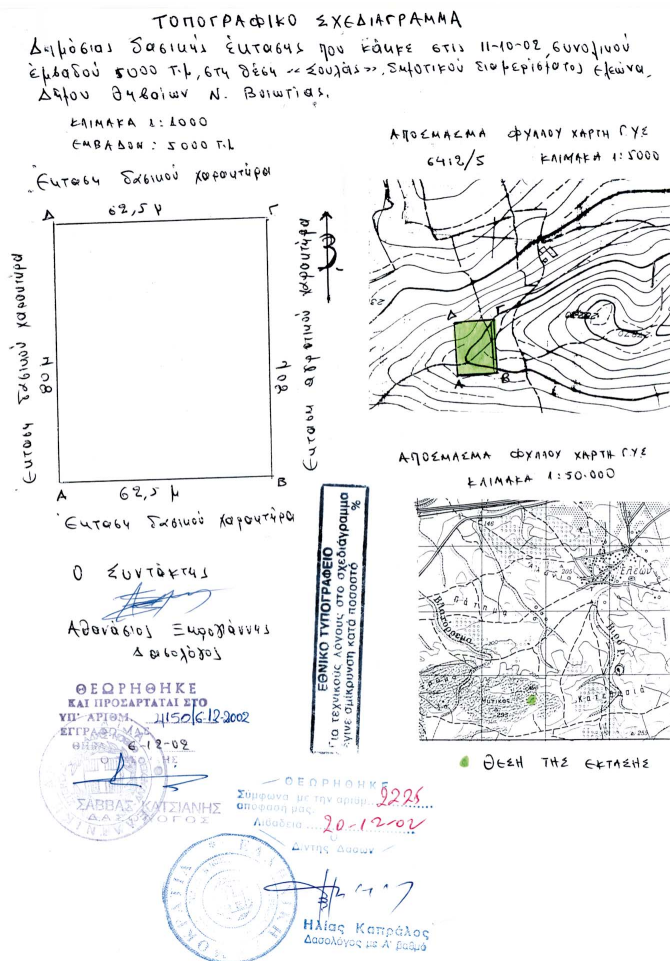 ΤΟΠΟΓΡΑΦΙΚΟ ΣΧΕΔΙΑΓΡΑΜΜΑ
Δημόσιας δασικής έκτασης που κάηκε στις 11-10-02, συνολικού
εμβαδού 5000 τ.μ., στη θέση «Σουλάς», δημοτικού διαμερίσματος Ελεώνα,
Δήμου Θηβαίων Ν. Βοιωτίας.
ΚΛΙΜΑΚΑ 1:1000
ΕΜΒΑΔΟΝ: 5000 τ.μ.
Έκταση δασικού χαρακτήρα
Δ 62,5 μ Γ
Έκταση δασικού χαρακτήρα
80 μ
80 μ
Έκταση αγροτικού χαρακτήρα
Β
Α 62,5 μ Β
Έκταση δασικού χαρακτήρα
ΑΠΟΣΠΑΣΜΑ ΦΥΛΛΟΥ ΧΑΡΤΗ Γ.Υ.Σ
6412/5 ΚΛΙΜΑΚΑ 1:5000
Δ Γ
Α Β
ΑΠΟΣΠΑΣΜΑ ΦΥΛΛΟΥ ΧΑΡΤΗ Γ.Υ.Σ
ΚΛΙΜΑΚΑ 1:50.000
Ελεών
Μύτικας
293
253
ΘΕΣΗ ΤΗΣ ΕΚΤΑΣΗΣ
Ο Συντάκτης
Αθανάσιος
Δασολόγος
ΕΘΝΙΚΟ ΤΥΠΟΓΡΑΦΕΙΟ
Για τεχνικούς λόγους στο σχεδιάγραμμα
έγινε σμίκρυνση κατά ποσοστό %
ΘΕΩΡΗΘΗΚΕ
ΚΑΙ ΠΡΟΣΑΡΤΑΤΑΙ ΣΤΟ
ΥΠ' ΑΡΙΘΜ. 4150/6-12-2002
ΕΓΓΡΑΦΟ ΜΑΣ
ΘΗΒΑ 6-12-02
ΣΑΒΒΑΣ ΚΑΤΣΙΑΝΗΣ
ΔΑΣΟΛΟΓΟΣ
ΘΕΩΡΗΘΗΚΕ
Σύμφωνα με την αριθμ. 2225
απόφασή μας.
Λιβαδειά 20-12-02
Ο
Δ/ντής Δασών
Ηλίας Καπράλος
Δασολόγος με Α' βαθμό